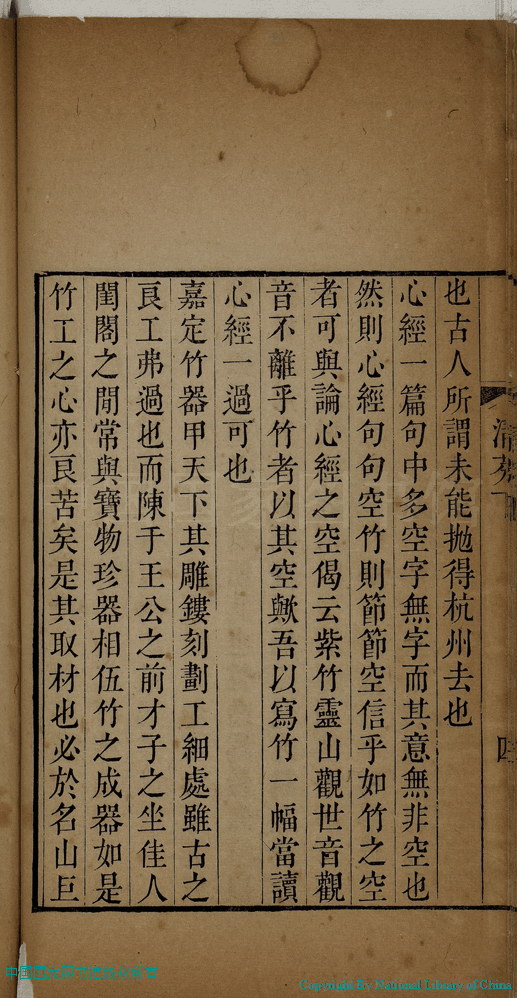 也古人所謂未能抛得杭州去也
心經一篇句中多空字無字而其意無非空也
然則心經句句空竹則節節空信乎如竹之空
者可與論心經之空偈云紫竹靈山觀世音觀
音不離乎竹者以其空歟吾以寫竹一幅當讀
心經一過可也
嘉定竹器甲天下其雕鏤刻劃工細處雖古之
良工弗過也而陳于王公之前才子之坐佳人
閨閣之閒常與寶物珍器相伍竹之成器如是
竹工之心亦良苦矣是其取材也必於名山巨
Copyright By National Library of China